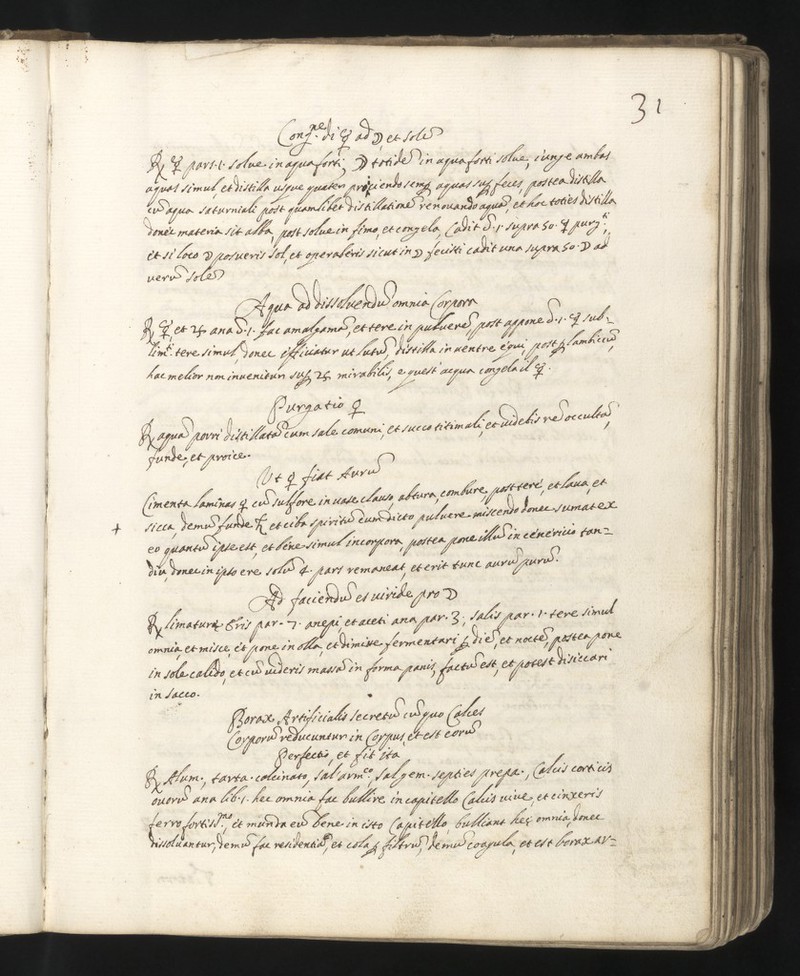 31
Cong.ne di ☿ ad ☽ et Solẽ
℞ ☿ part. 1. solue in aqua forti, ☽ totidẽ in aqua forti solue, iunge ambas
aquas simul, et distilla usque quater proiiciendo semp aquas sup feces, postea distilla
cũ aqua saturniali post quamlibet distillationẽ renouando aquã, et hoc toties distilla
donec materia sit alba, post solue in fimo, et congela, Cadit p. 1. supra 50. ☿ purg.ti
et si loco ☽ posueris Sol, et operaberis sicut in ☽ fecisti cadit una supra 50. ☽ ad
uerũ Solẽ
Aqua ad dissoluendũ omnia Corpora
℞ ☿, et ♃ ana p. 1. fac amalgama, et tere in puluerẽ, post appone p. 1. ☿ sub=
lim.ti tere simul, donec efficiatur ut lutũ, distilla in uentre equi, post p lambiccũ,
hac melior nm inuenitur sup ♃ mirabilis, e quest' acqua congela il ☿.
Purgatio ♀
℞ aquã porri distillatã cum sale comuni, et succo titimali, et uidebis rẽ occultã,
funde, et proice.
Ut ♀ fiat Aurũ
Cimenta laminas ♀ cũ sulfore in uase clauso, obtura, combure, post tere, et laua, et
+ sicca, demũ funde ♄ et ciba spiritũ eum dicto puluere miscendo donec sumat ex
eo quantũ ipse est, et bene simul incorpora, postea pone illũ in cenericio tan=
diu, donec in ipso ere solũ 4. pars remaneat, et erit tunc aurũ purũ.
Ad faciendũ es uiride pro ☽
℞ limatura Eris par. 7. anepi, et aceti ana par. 3, salis par. 1. tere simul
omnia, et misce, et pone in olla, et dimitte fermentari p diẽ, et noctẽ, postea pone
in sole calido, et cũ uideris massã in forma panis, factũ est, et potest disiccari
in sacco.
Borax Artificialis secretũ cũ quo Calces
Corporũ reducuntur in Corpus, et est eorũ
Perfectio, et fit ita
℞ Alum., tarta. colcinato, Sal arm.co, Sal gem. septies prepa., Calcis corticis
ouorũ ana lib. 1. hec omnia fac bullire in capitello Calcis uiue, et cinxeris
ferro fortiss.mo, et munda eũ bene in isto Capitello bulliant hec omnia donec
dissoluantur, demũ fac residentiã, et cola p filtrũ, demũ coagula, et est borax ar=